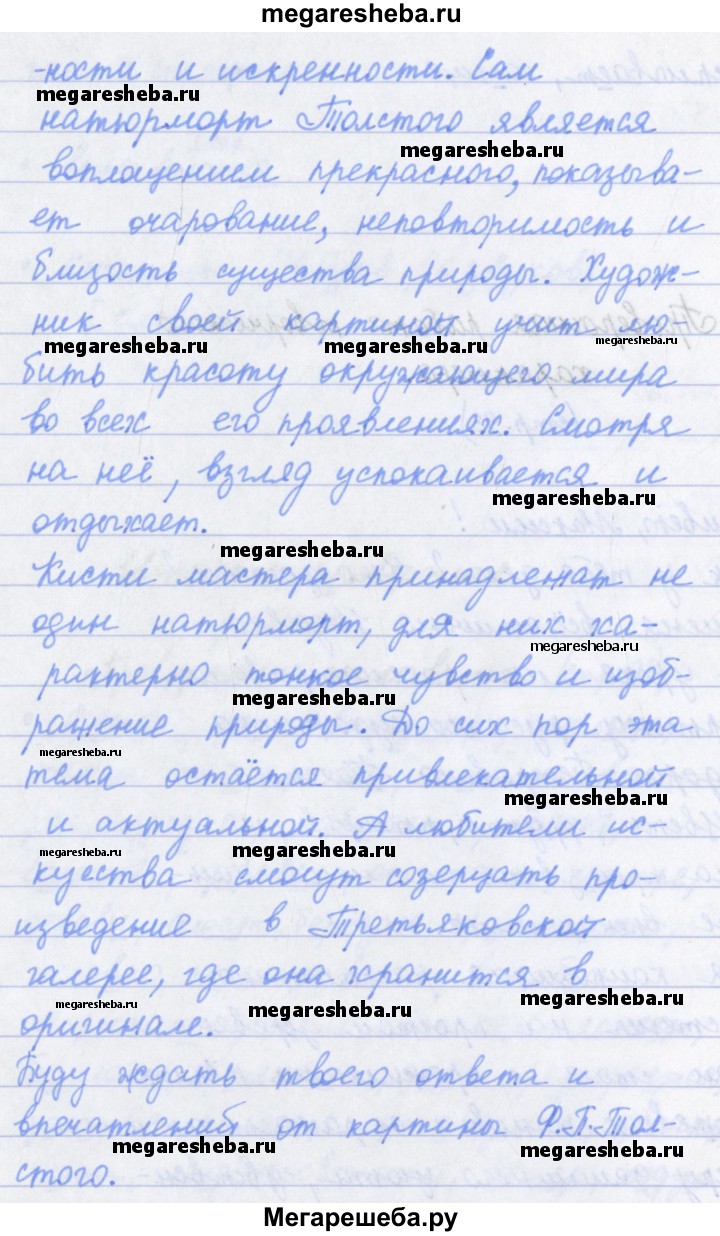 megaresheba.ru
-ности и искренности. Сам
megaresheba.ru
натюрморт Толстого является
megaresheba.ru
воплощением прекрасного, показыва-
ет очарование, неповторимость и
близость существа природы. Худож-
ник своей картиной учит лю-
megaresheba.ru megaresheba.ru megaresheba.ru
бить красоту окружающего мира
во всех его проявлениях. Смотря
на неё, взгляд успокаивается и
megaresheba.ru
отдыхает.
megaresheba.ru
Кисти мастера принадлежат не
один натюрморт, для них ха-
megaresheba.ru
рактерно тонкое чувство и изоб-
megaresheba.ru
ражение природы. До сих пор эта
megaresheba.ru
тема остаётся привлекательной
megaresheba.ru
и актуальной. А любители ис-
megaresheba.ru megaresheba.ru
кусства смогут созерцать про-
изведение в Третьяковской
галерее, где она хранится в
megaresheba.ru megaresheba.ru megaresheba.ru
оригинале.
Буду ждать твоего ответа и
впечатлений от картины Ф.П.Тол-
megaresheba.ru megaresheba.ru
стого.
Мегарешеба.ру